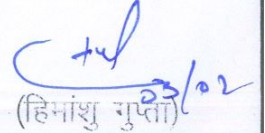 03/02
(हिमांशु गुप्ता)